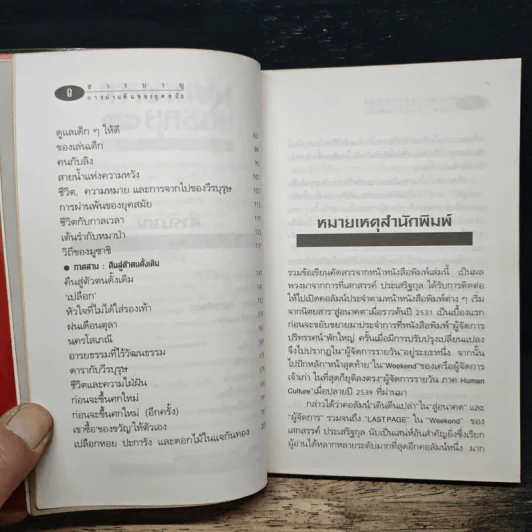 สารบาญ
การผ่านพ้นของยุคสมัย
ดูแลเด็ก ๆ ให้ดี
ของเล่นเด็ก
คนกับลิง
สายน้ำแห่งความหวัง
ชีวิต, ความหมาย และการจากไปของวีรบุรุษ
การผ่านพ้นของยุคสมัย
ชีวิตกับกาลเวลา
เต้นรำกับหมาป่า
วิถีของมูซาชิ
● ภาคสาม : คืนสู่ตัวตนดั้งเดิม
คืนสู่ตัวตนดั้งเดิม
'เปลือก'
หัวใจที่ไม่ได้ใส่รองเท้า
ฝนเดือนตุลา
นครโสเภณี
อารยธรรมที่ไร้วัฒนธรรม
ดารากับวีรบุรุษ
ชีวิตและความใฝ่ฝัน
ก่อนจะขึ้นศกใหม่
ก่อนจะขึ้นศกใหม่ (อีกครั้ง)
เขาซื้อของขวัญให้ตัวเอง
เปลือกหอย ปะการัง และดอกไม้ในแจกันทอง
หมายเหตุสำนักพิมพ์
รวมข้อเขียนคัดสรรจากหน้าหนังสือพิมพ์เล่มนี้ เป็นผล
พวงมาจากการที่เสกสรรค์ ประเสริฐกุล ได้รับการติดต่อ
ให้ไปเปิดคอลัมน์ประจำตามหน้าหนังสือพิมพ์ต่าง ๆ เริ่ม
จากนิตยสาร"สู่อนาคต"เมื่อราวต้นปี 2531 เป็นเบื้องแรก
ก่อนจะขยับขยายมาประจำการที่หนังสือพิมพ์"ผู้จัดการ
ปริทรรศน์"พักใหญ่ ครั้นเมื่อมีการปรับปรุงเปลี่ยนแปลง
จึงไปปรากฏใน"ผู้จัดการรายวัน"อยู่ระยะหนึ่ง จากนั้น
ไปปักหลัก"หน้าสุดท้าย"ใน"Weekend"ของเครือผู้จัดการ
เจ้าเก่า ในที่สุดก็ยุติลงตรง"ผู้จัดการรายวัน ภาค Human
Culture"เมื่อปลายปี 2539 ที่ผ่านมา
กล่าวได้ว่าคอลัมน์"เดินตีนเปล่า"ใน"สู่อนาคต" และ
"ผู้จัดการ" รวมจนถึง "LAST PAGE" ใน "Weekend" ของ
เสกสรรค์ ประเสริฐกุล นับเป็นเสน่ห์อันสำคัญยิ่งซึ่งเรียก
ผู้อ่านได้หลากหลายระดับมากที่สุดอีกคอลัมน์หนึ่ง มาก